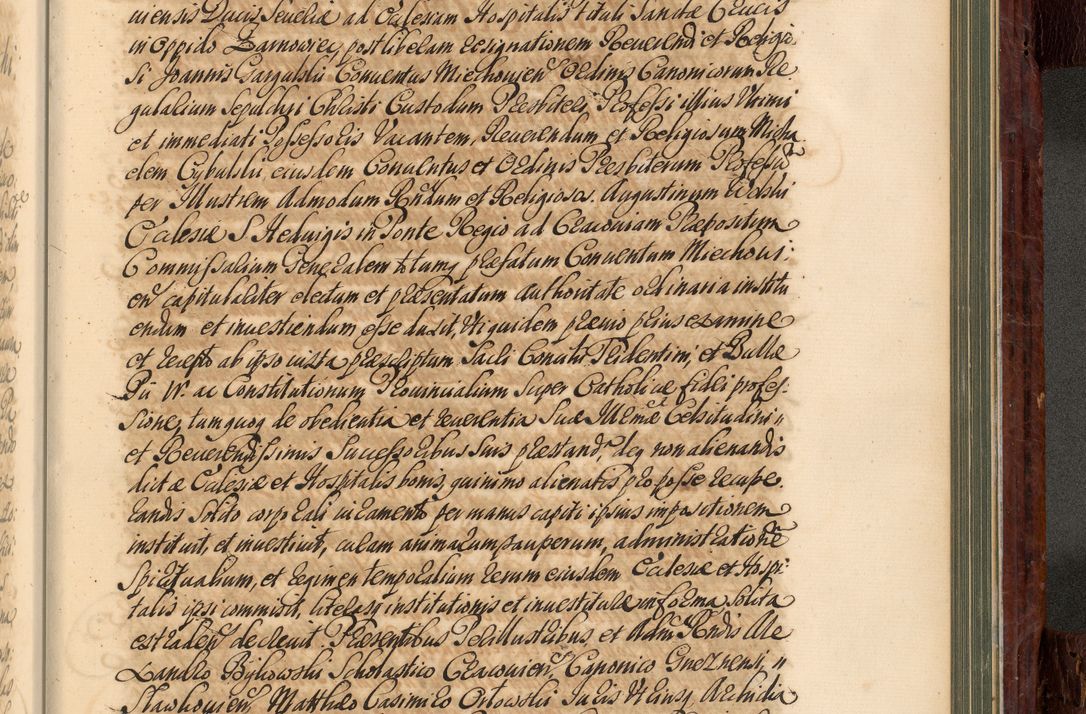 uiensis Ducis Seueriæ ad Ecclesiam Hospitalis tituli Sanctæ Crucis
in Oppido Zarnowiec, post liberam resignationem Reuerendi et Religio-
si Joannis Gargulski Conuentus Miechouien: Ordinis Canonicorum Re
gularium Sepulchri Christi Custodum Presbiteri Professi illius Vltimi
et immediati Possessoris Vacantem, Reuerendum et Religiosum Micha
elem Cybulski eiusdem Conuentus et Ordinis Presbiterum Professū
per Illustrem Admodum Rndum et Religiosos. Augustinum
Ecclesiæ S. Heduigis in Ponte Regio ad Cracouiam Præpositum
Commissarium Generalem totumq præfatum Conuentum Miechoui:
en: capitulariter electum et præsentatum authoritate ordinaria institu
endum et inuestiendum esse duxit, Vti quidem præuio prius examine
et recepto ab ipso iuxta præscriptum Sacri Concilii Tridentini, et Bullæ
Pii IV. ac Constitutionum Prouincialium super Catholicæ fidei profes-
sione, tum quoq de obedientia et reuerentia Suæ Illmæ Celsitudini "
et Reuerendissimis Successoribus suis præstand: deq non alienandis
dictæ Ecclesiæ et Hospitalis bonis, quinimo alienatis pro posse recupe
randis solito corporali iuramento per manus capiti ipsius impositionem
instituit, et inuestiuit, curam animarum pauperum, administrationē
Spiritualium, et regimen temporalium rerum eiusdem Ecclesiæ et Hospi-
talis ipsi commisit, literasq institutionis et inuestituræ in forma solita
extraden: decreuit. Præsentibus Perillustribus et Adm: Rndis Ale
xandro Bykowski Scholastico Cracouien: Canonico Gneznensi, "
Slawkouien: Matthæo Casimiro Orlowski Juris Vtriusq Archidia